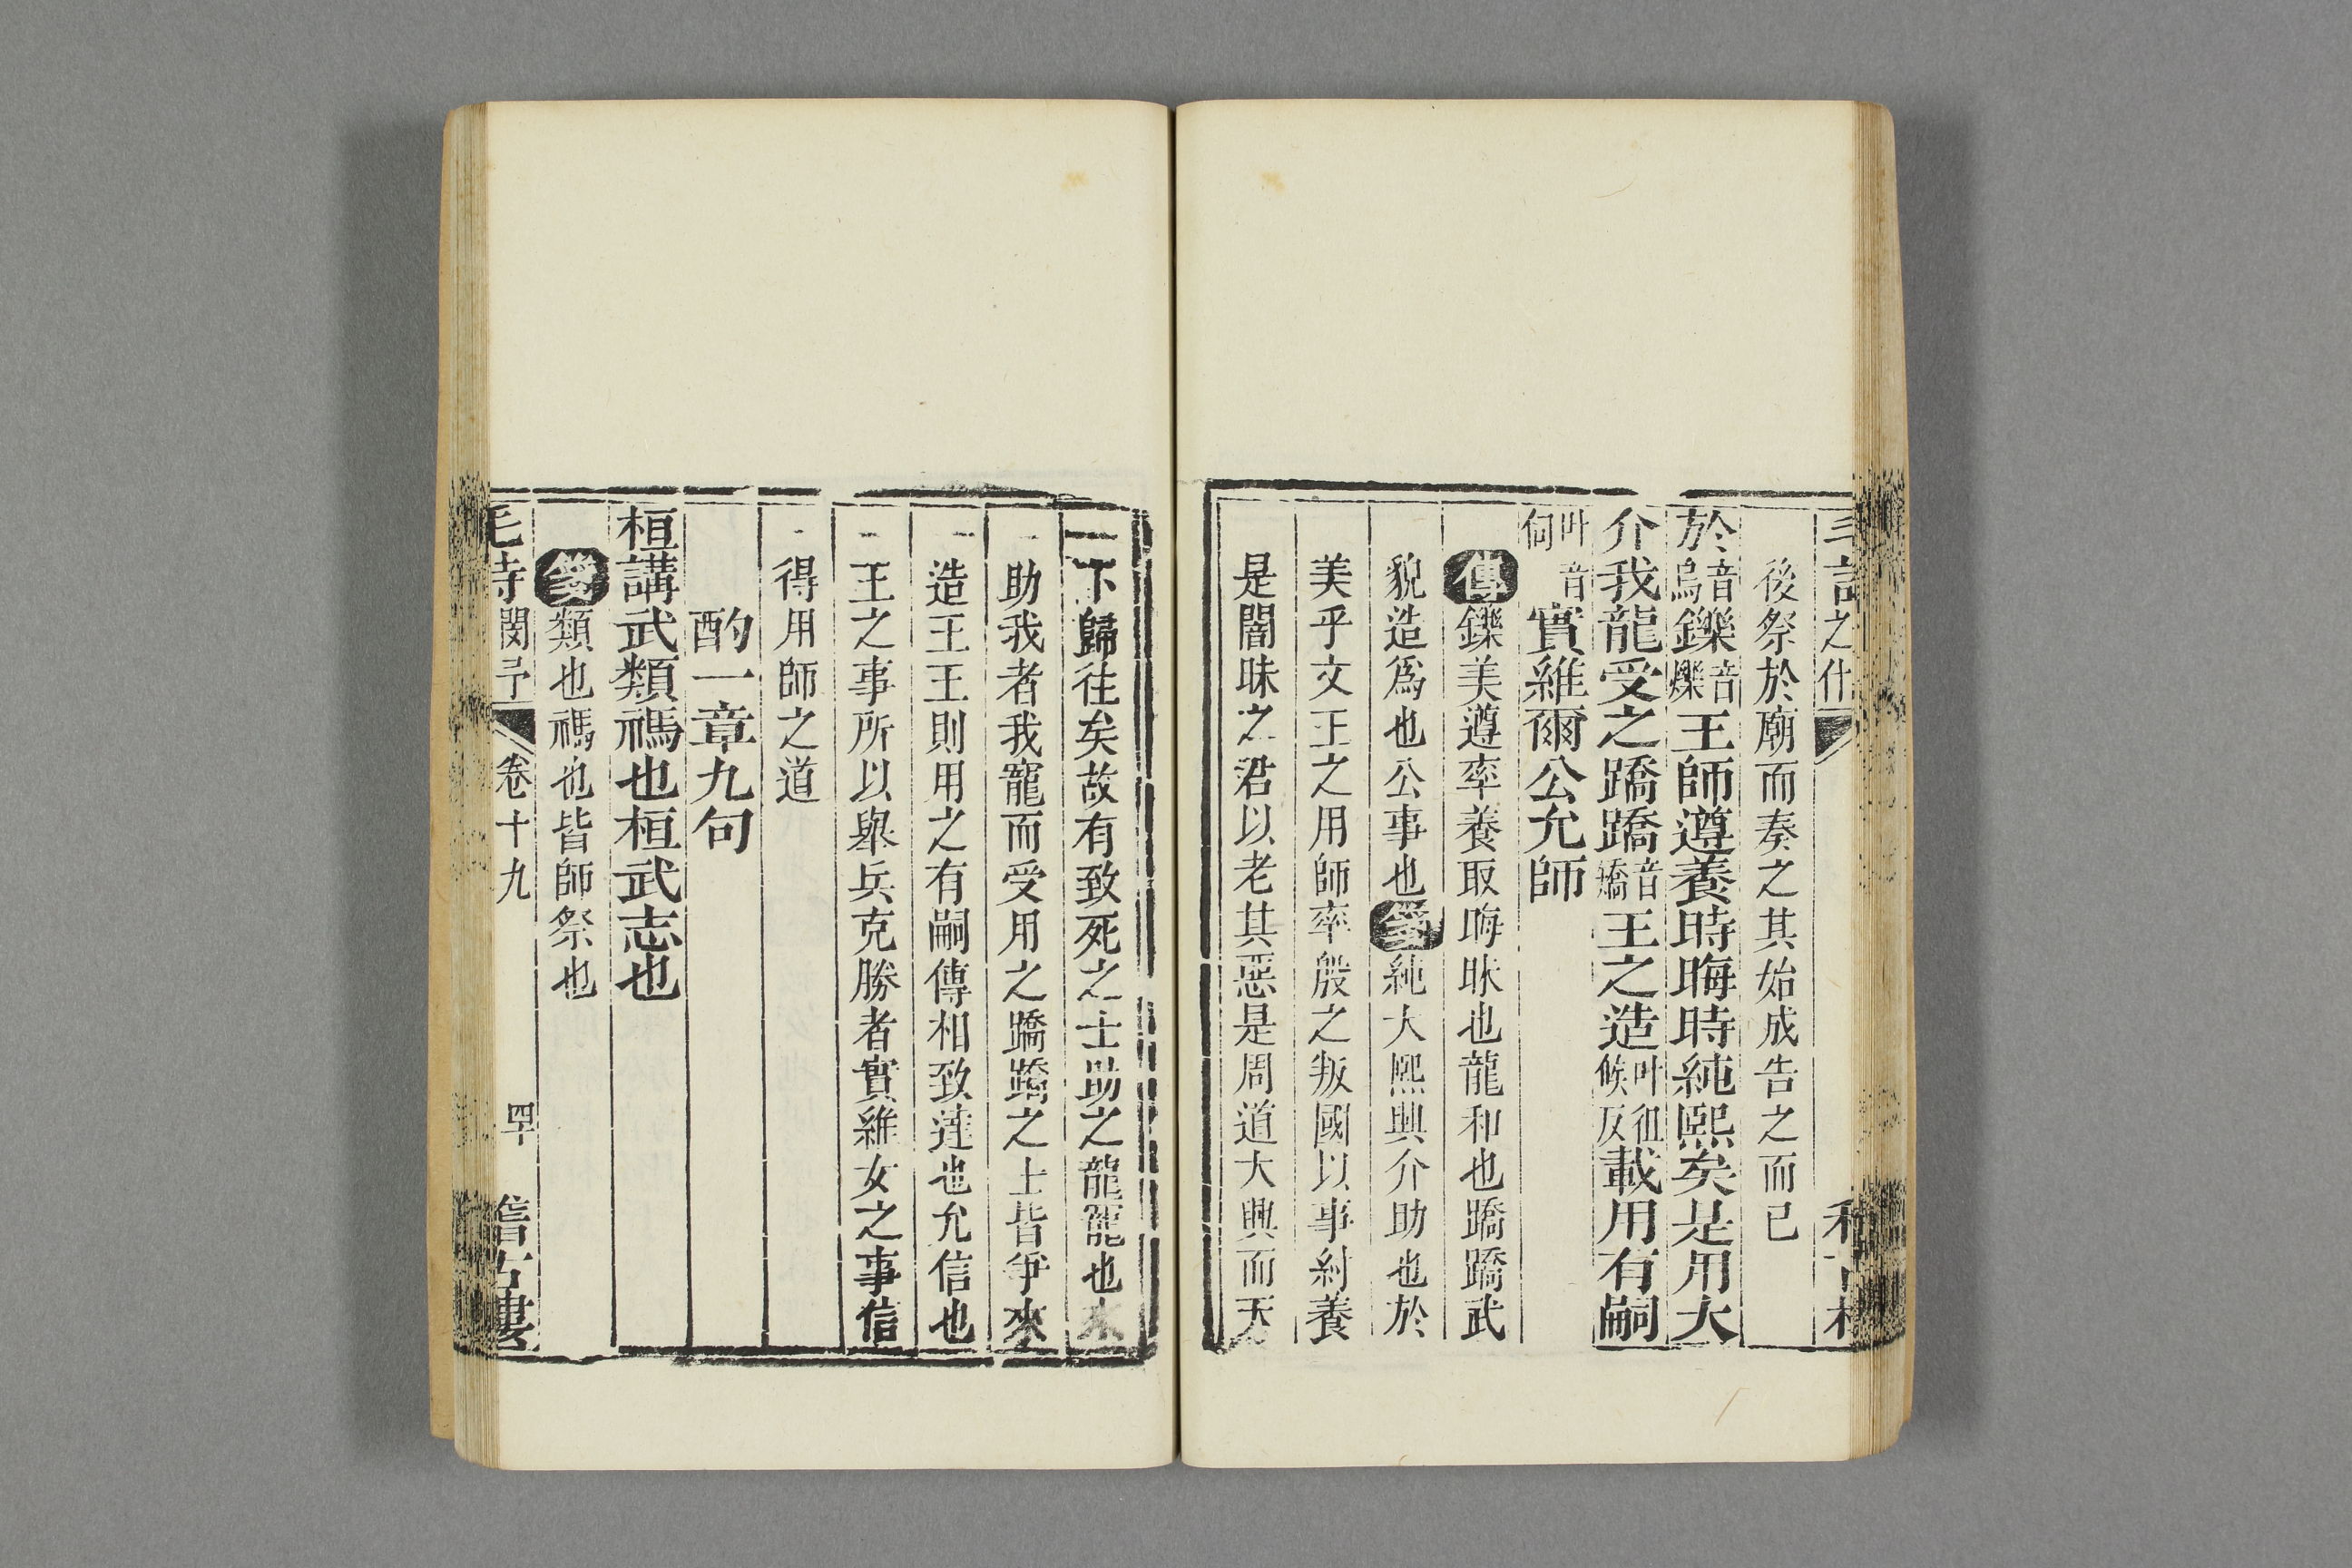 後祭於廟而奏之其始成告之而已
於音烏鑠音爍王師遵養時晦時純熙矣是用大
介我龍受之蹻蹻音矯王之造叶徂候反載用有嗣
叶音伺實維爾公允師
傳鑠美遵率養取晦昧也龍和也蹻蹻武
貌造爲也公事也箋純大熙興介助也於
美乎文王之用師率殷之叛國以事紂養
是闇昧之君以老其惡是周道大興而天
下歸往矣故有致死之士助之龍寵也來
助我者我寵而受用之蹻蹻之士皆爭來
造王王則用之有嗣傳相致達也允信也
王之事所以舉兵克勝者實維女之事信
得用師之道
酌一章九句
桓講武類禡也桓武志也
箋類也禡也皆師祭也
毛詩閔予 卷十九 四 稽古樓